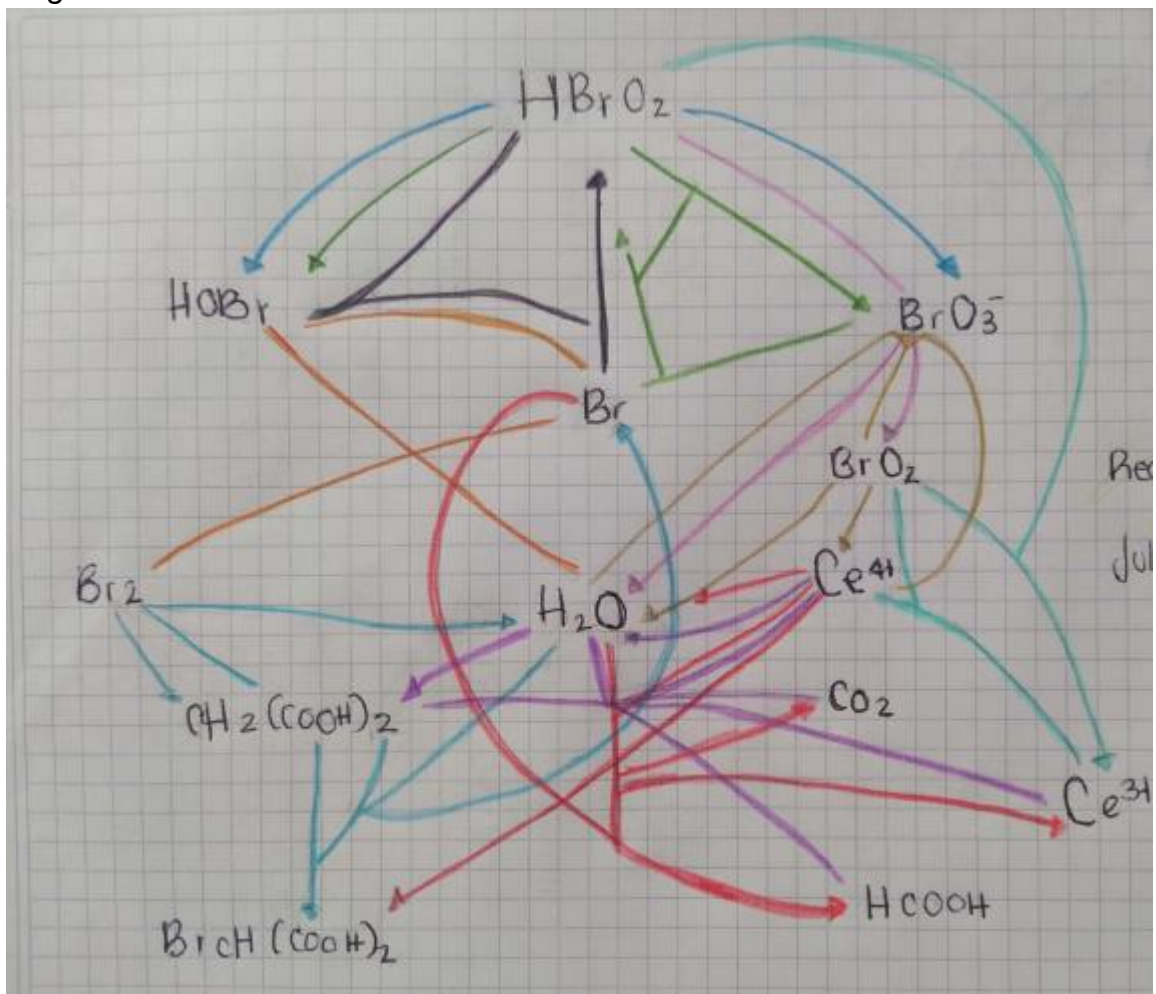 HBrO₂
HOBr
BrO₃⁻
Br
BrO₂
Rec
Br2
Ce⁴⁺
Jul
H₂O
CH₂(COOH)₂
CO₂
Ce³⁺
HCOOH
BrcH(COOH)₂